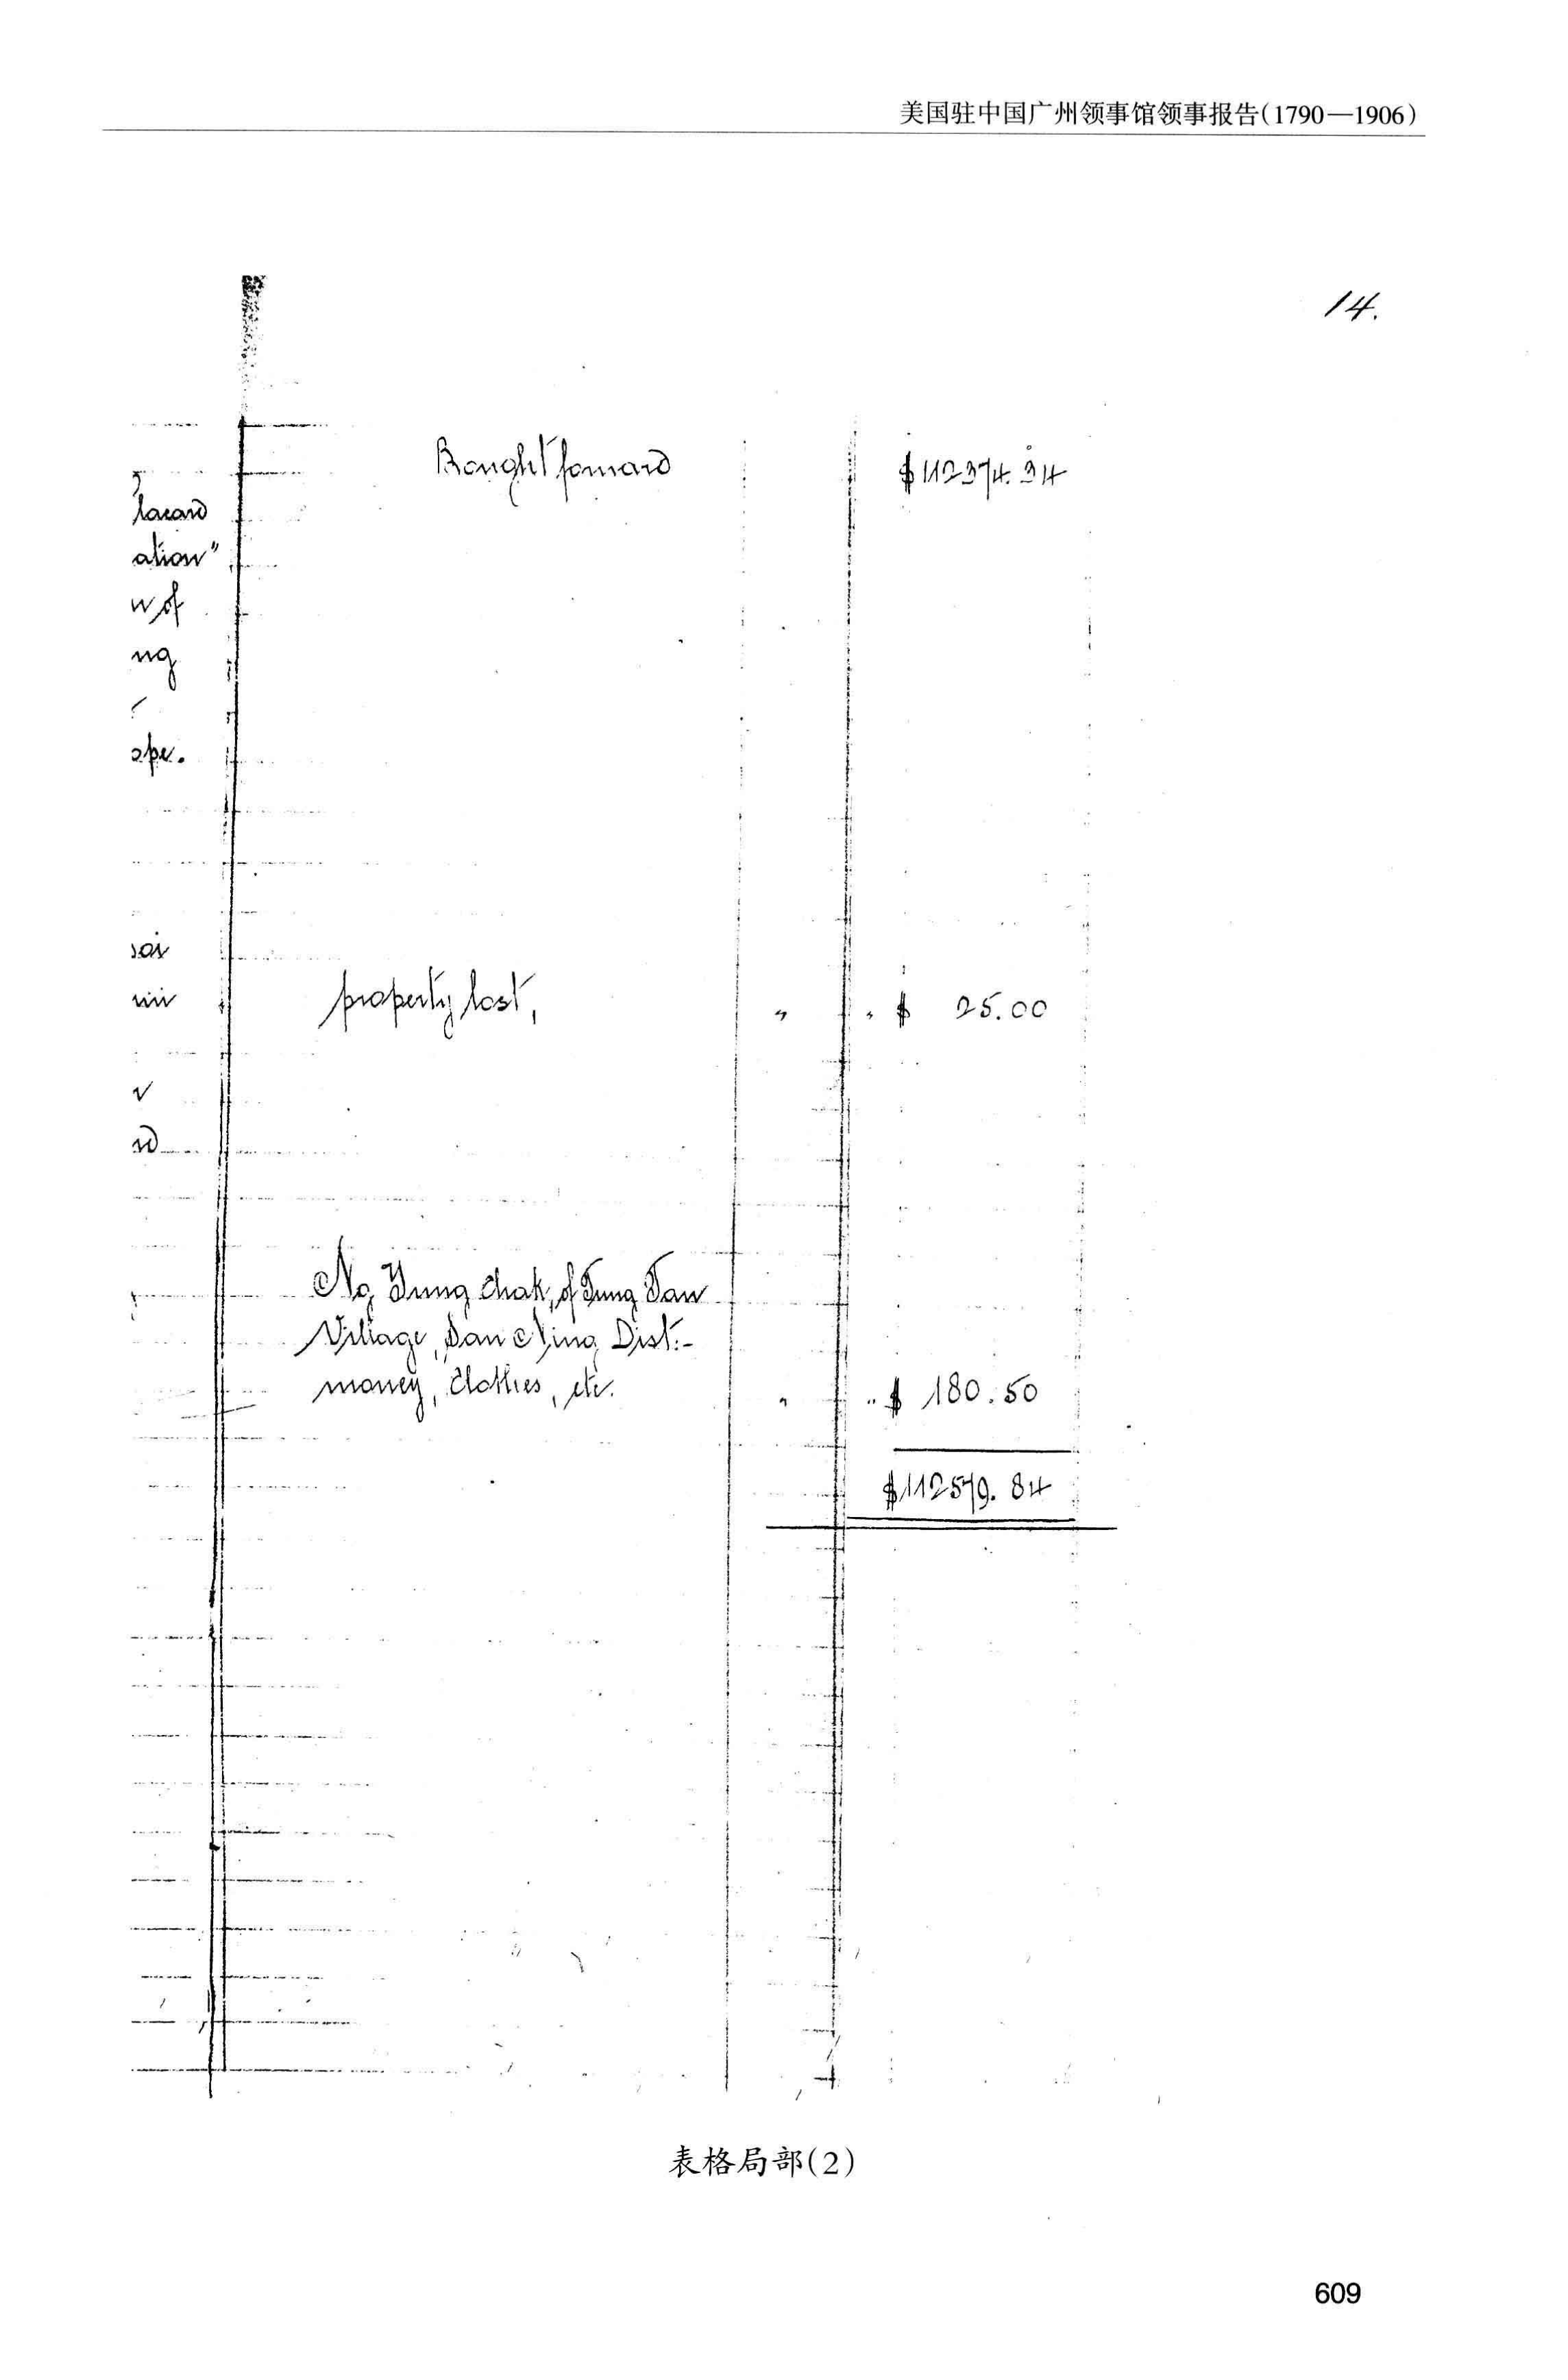 美国驻中国广州领事馆领事报告(1790—1906)
14.
Bought forward $112374.34
lacard
ation"
w of
ng
ope.
property lost, " " $ 25.00
Ng Yung Chak, of Tung Tan
Village, San Ning Dist:-
money, Clothes, etc. " " $ 180.50
$112579.84
表格局部(2)
609